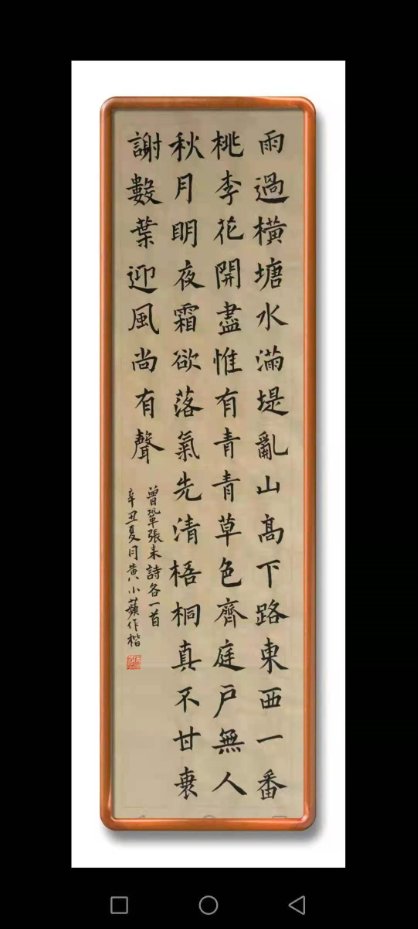 雨過橫塘水滿堤亂山高下路東西一番
桃李花開盡惟有青青草色齊庭戶無人
秋月明夜霜欲落氣先清梧桐真不甘衰
謝數葉迎風尚有聲
曾鞏張耒詩各一首
辛丑夏月黄小蘋作楷